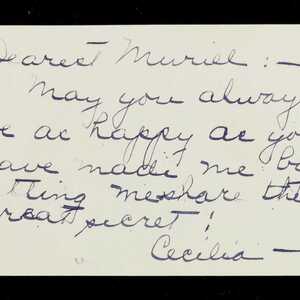 Dearest Muriel: —
May you always
be as happy as you
have made me by
letting me share the
great secret!
Cecilia —